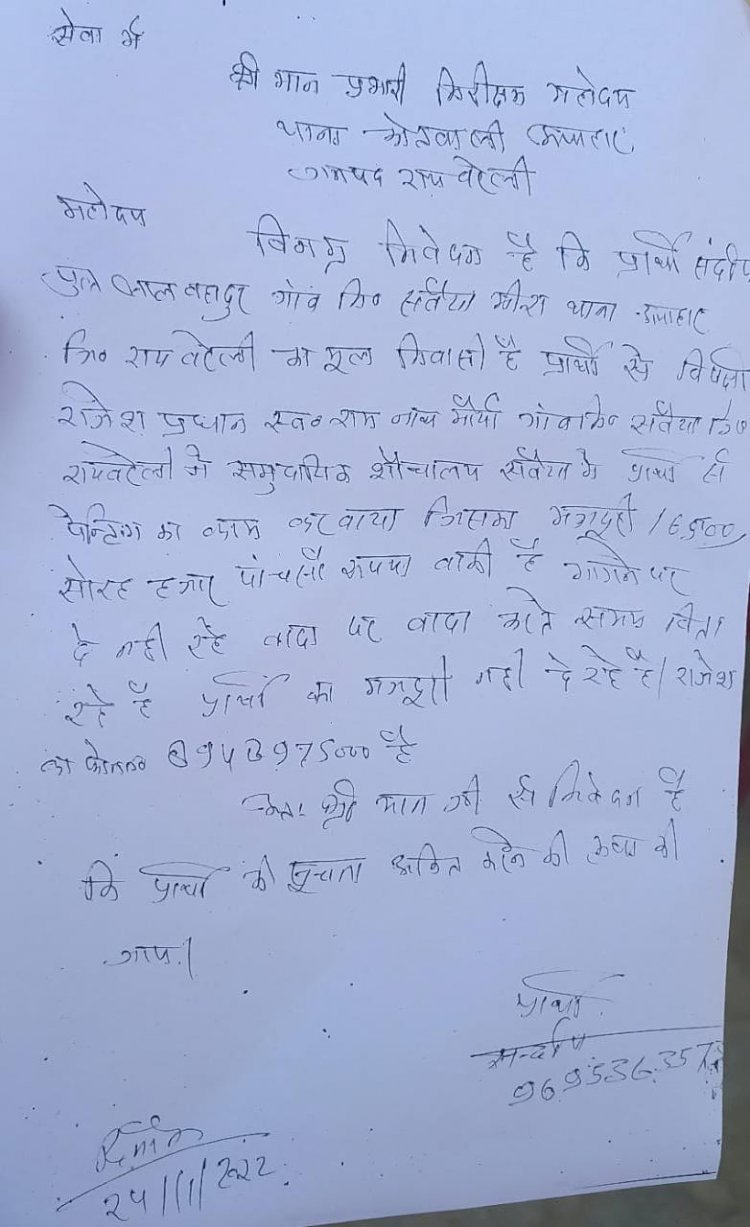 सेवा में
श्री मान प्रभारी निरीक्षक महोदय
थाना कोतवाली ऊंचाहार
जनपद राय बरेली
महोदय
विनम्र निवेदन है कि प्रार्थी संदीप
पुत्र लाल बहादुर गांव नि० सवैया थाना ऊंचाहार
जि० राय बरेली का मूल निवासी है प्रार्थी से विपक्षी
राजेश प्रधान स्व० राम नाथ मौर्या गांव नि० सवैया जि०
रायबरेली ने समुदायिक शौचालय सवैया में प्रार्थी से
पेन्टिंग का काम करवाया जिसका मजदूरी 16500
सोरह हजार पांच सौ रूपया बाकी है मांगने पर
दे नही रहे वादा पर वादा करते समय बिता
रहे है प्रार्थी का मजदूरी नही दे रहे है। राजेश
का फोन न० है
अतः श्री मान जी से निवेदन है
कि प्रार्थी की सूचना अंकित करने की कृपा की
जाय।
प्रार्थी
सन्दीप
दिनांक
24/11/2022